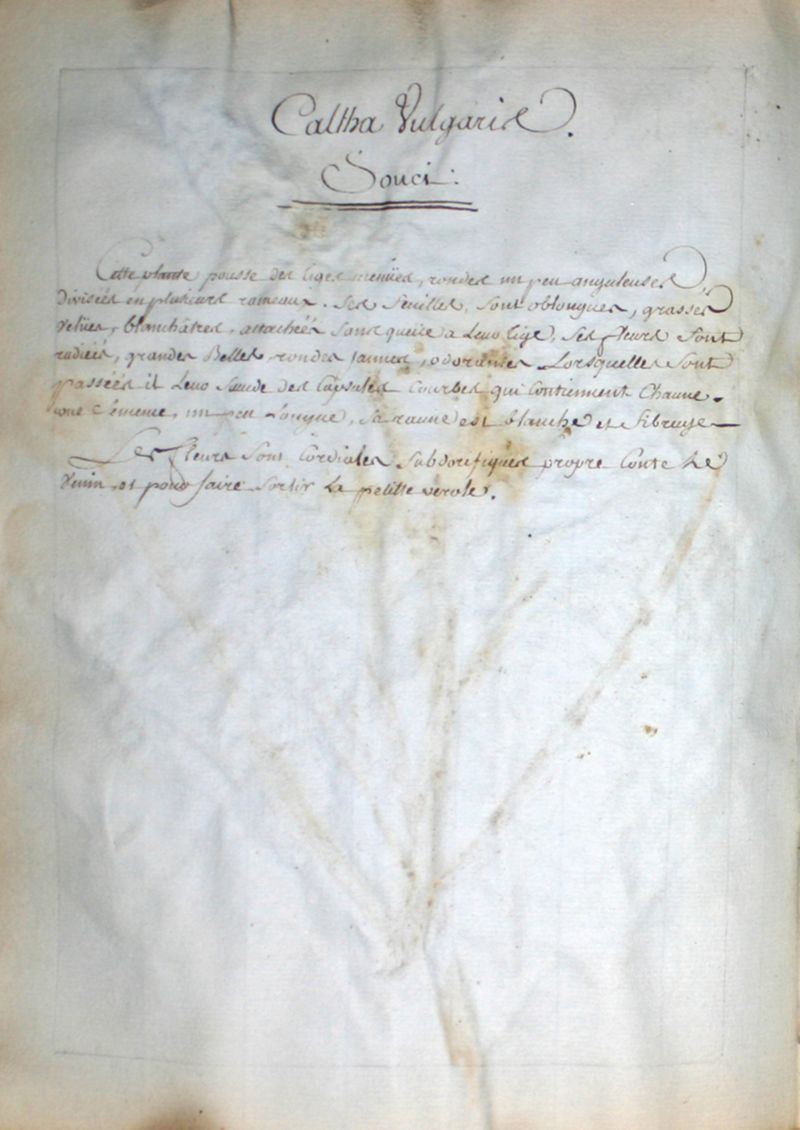 Caltha Vulgaris.
Souci:
Cette plante pousse des tiges menües, rondes un peu anguleuses,
divisées en plusieurs rameaux. Ses feuilles, sont oblongues, grasses
velües, blanchâtres, attachées sans queüe a leur tige, ses fleurs sont
radiées, grandes Belles, rondes jaunes, odorantes. Lorsquelles sont
passées il leur sucede des Capsules Courbes qui Contiennent Chacune
une semence, un peu longue, sa racine est blanche et fibreuse
Les fleurs sont Cordiales Sudorifiques propre Conte le
Venin, et pour faire sortir la petitte verole.